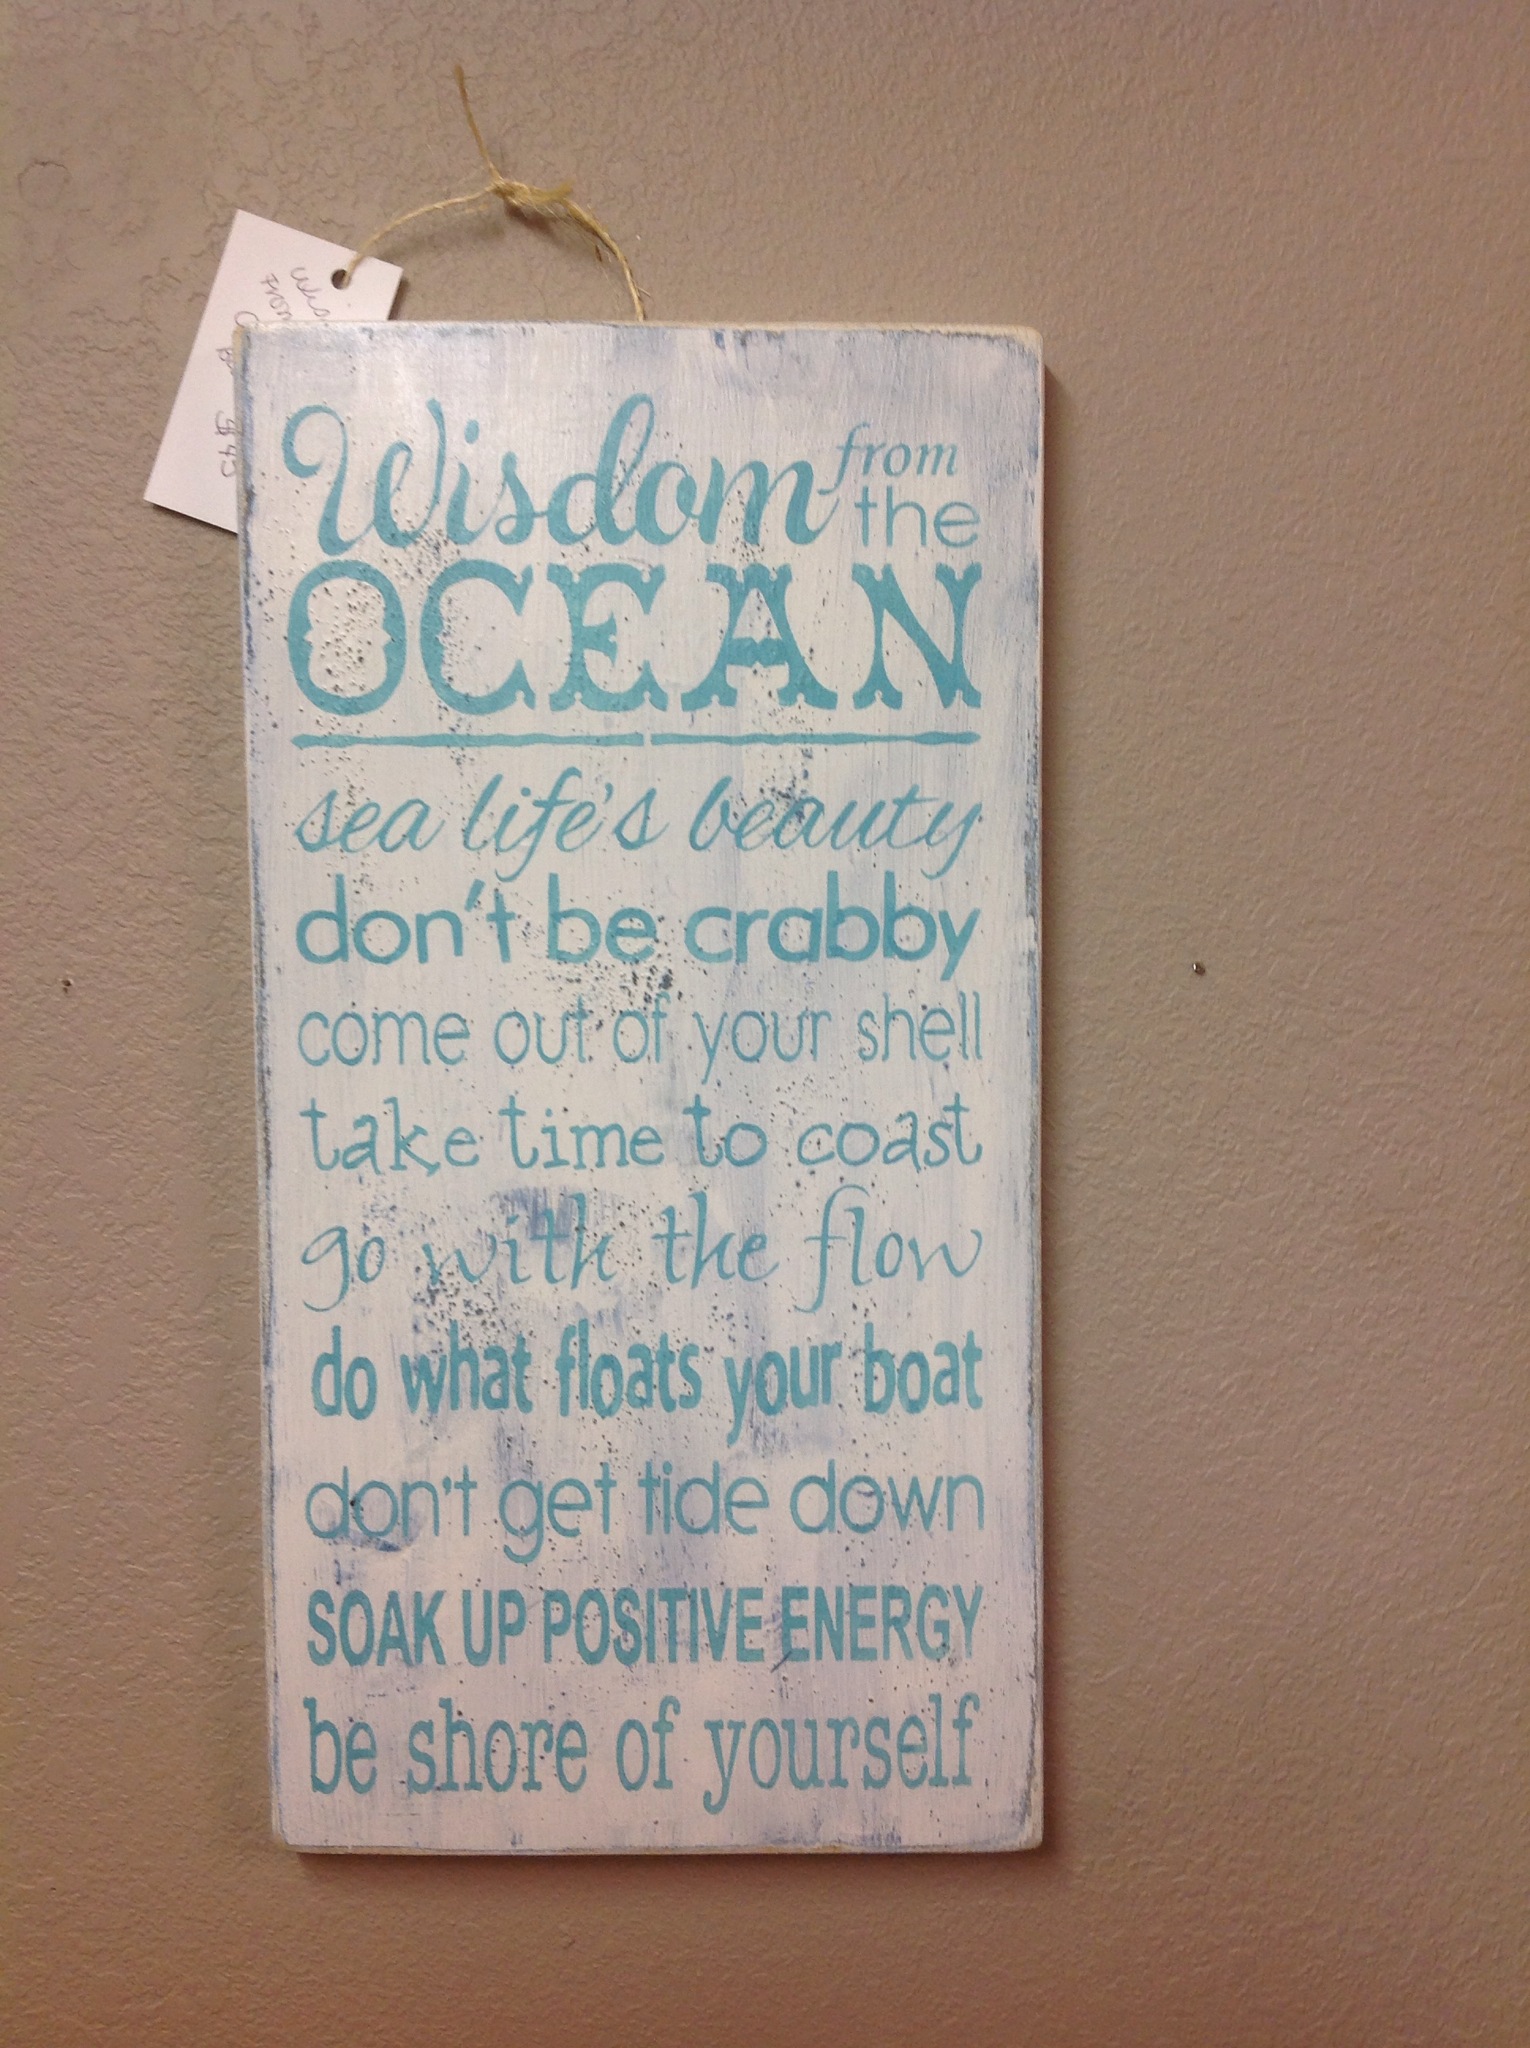 Wisdom from the
OCEAN
sea life's beauty
don't be crabby
come out of your shell
take time to coast
go with the flow
do what floats your boat
don't get tide down
SOAK UP POSITIVE ENERGY
be shore of yourself
$45